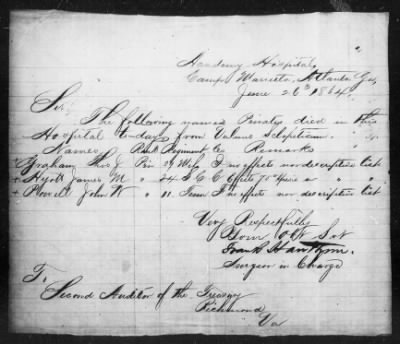 Academy Hospital,
Camp Atlanta Ga,
June 26th 1864
Sir
The following named Privates died in this
Hospital to-day from Vulnus Sclopeticum
Names, Rank Regiment Co. Remarks
+ Graham J Priv 29 I no effects nor descriptive list
+ Hyott James M " 24 S C C Effects 70 " "
+ Powell John W " 11. Tenn I no effects nor descriptive list
Very Respectfully
Your Obt Svt
Frank
Surgeon in Charge
To
Second Auditor of the Treasury
Richmond
Va